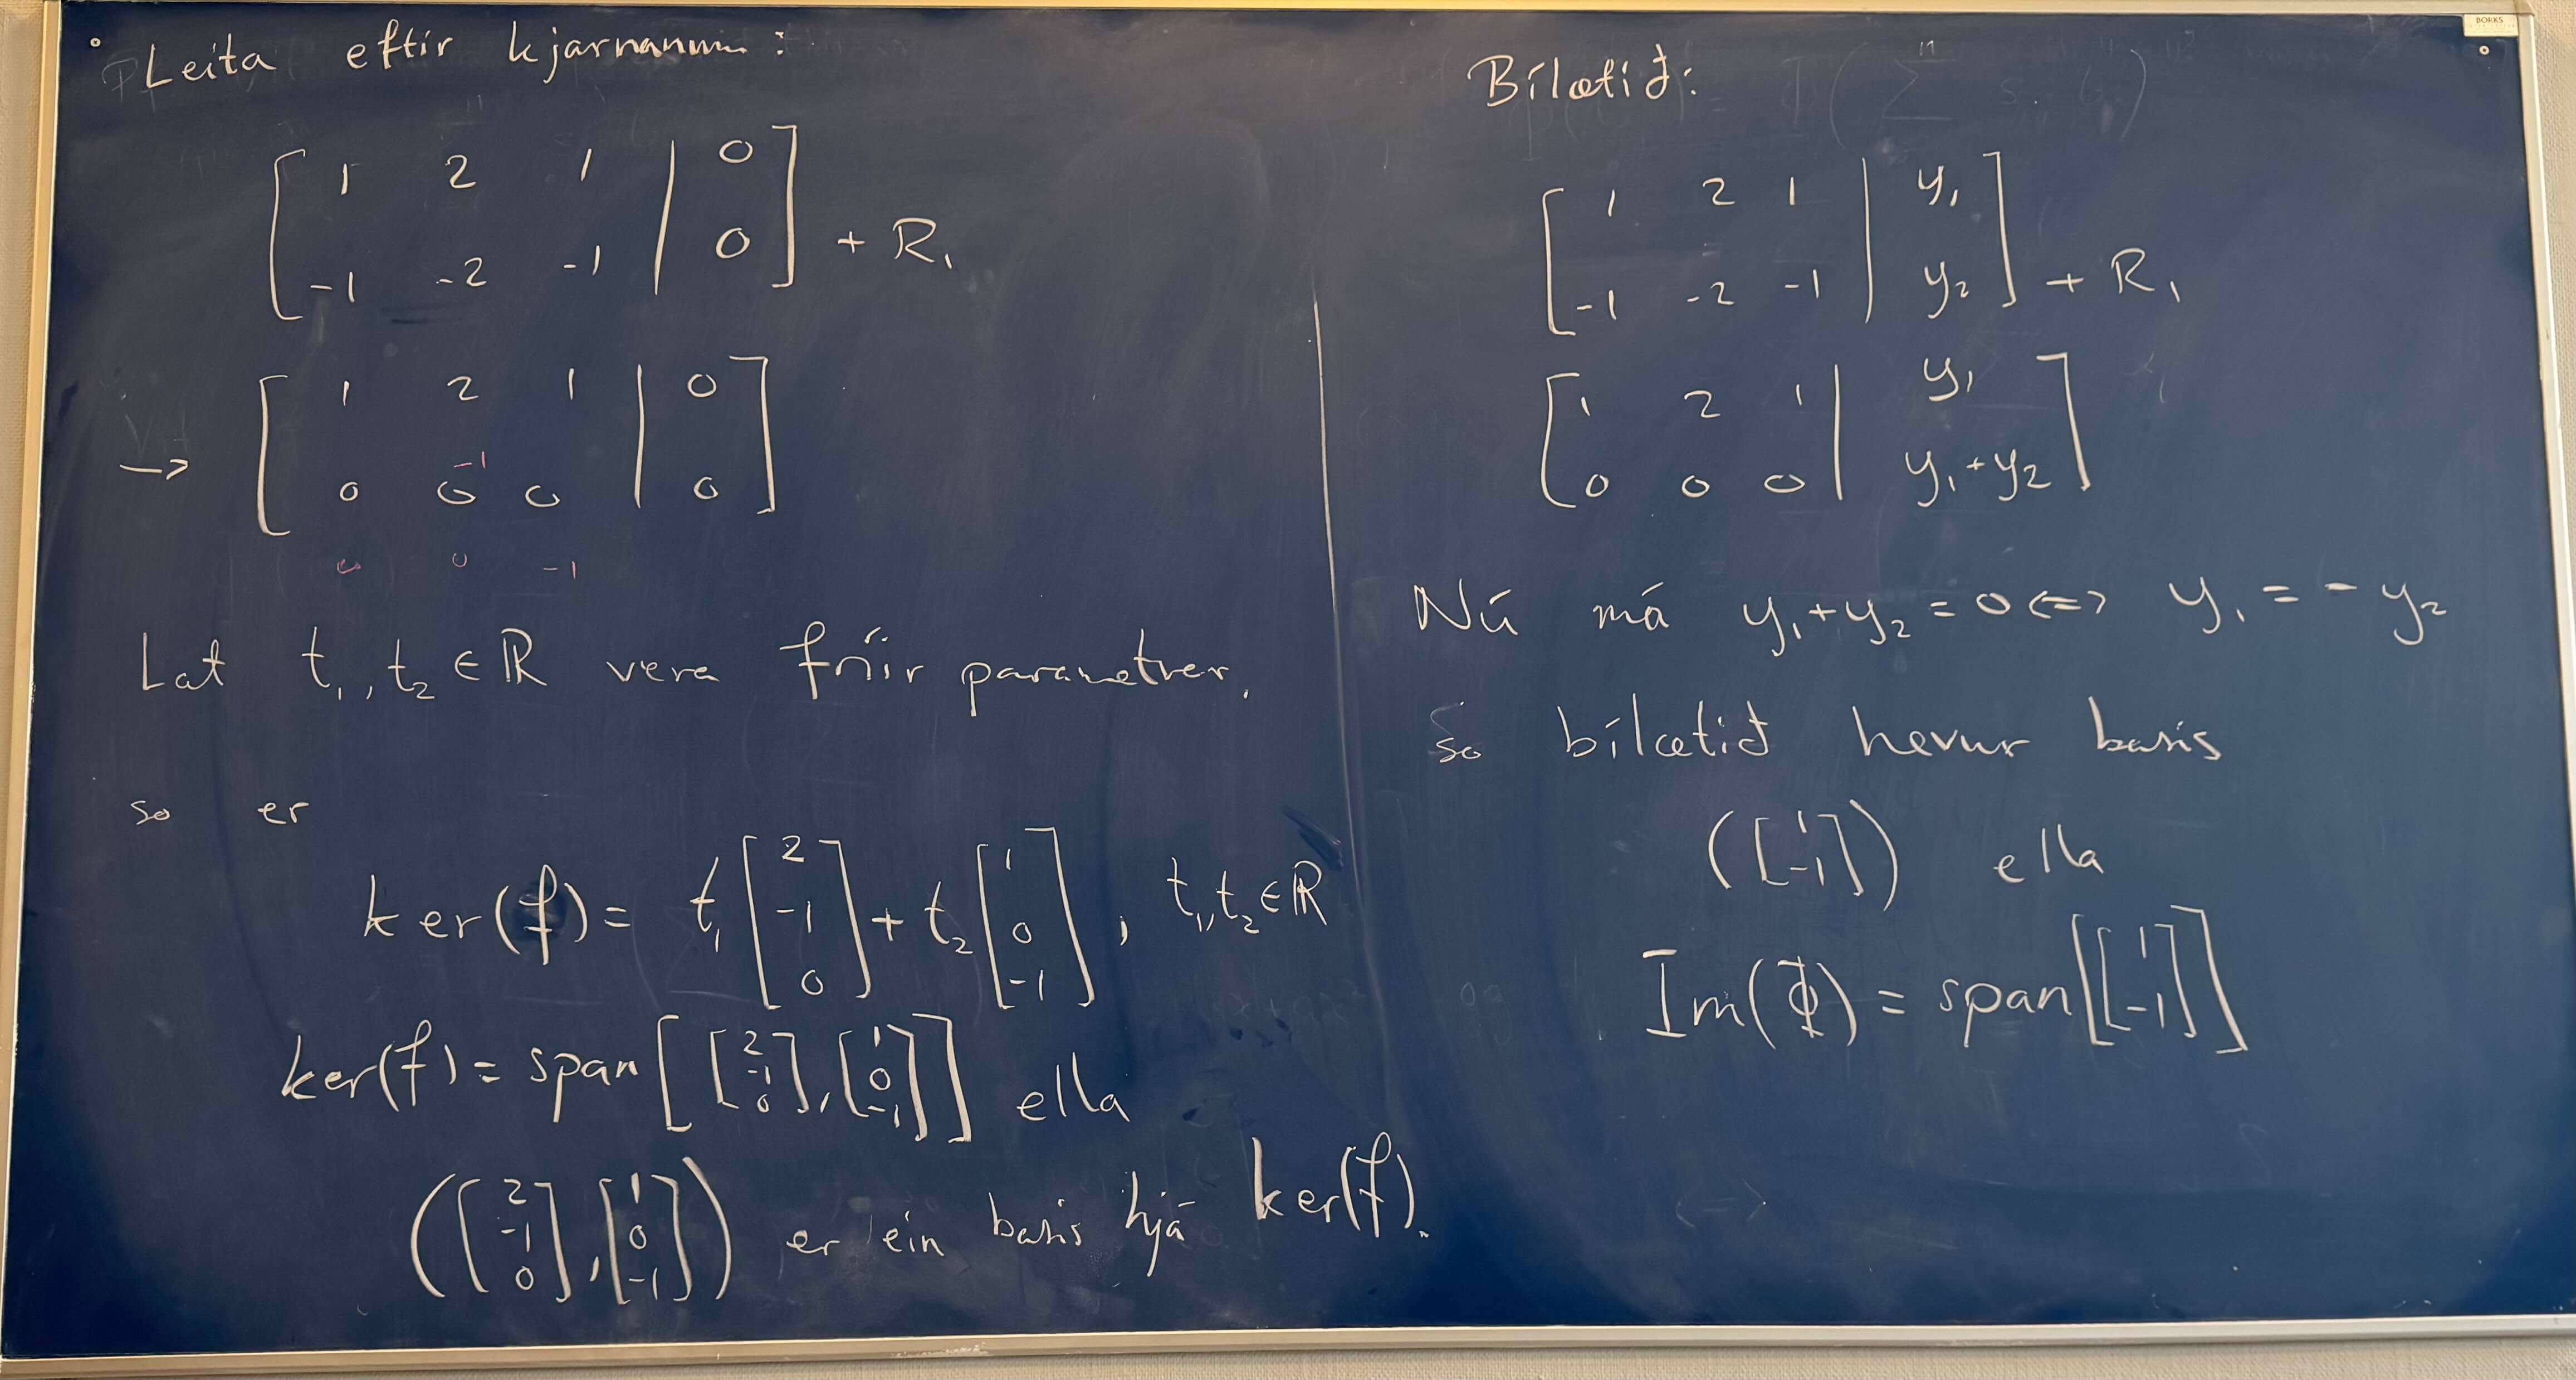 Leita eftir kjarnanum:
[ 1 2 1 | 0 ]
[ -1 -2 -1 | 0 ] + R₁
[ 1 2 1 | 0 ]
-1
→ [ 0 0 0 | 0 ]
0 0 -1
Lat t₁, t₂ ∈ ℝ vera fríir parametrar,
so er
ker(f) = t₁ [2 -1 0] + t₂ [1 0 -1], t₁, t₂ ∈ ℝ
ker(f) = span[ [2 -1 0], [1 0 -1] ] ella
([2 -1 0], [1 0 -1]) er ein basis hjá ker(f).
Bílætið:
[ 1 2 1 | y₁ ]
[ -1 -2 -1 | y₂ ] + R₁
[ 1 2 1 | y₁ ]
[ 0 0 0 | y₁+y₂ ]
Nú má y₁+y₂ = 0 <=> y₁ = -y₂
So bílætið hevur basis
([1 -1]) ella
Im(Φ) = span[ [1 -1] ]
BORKS